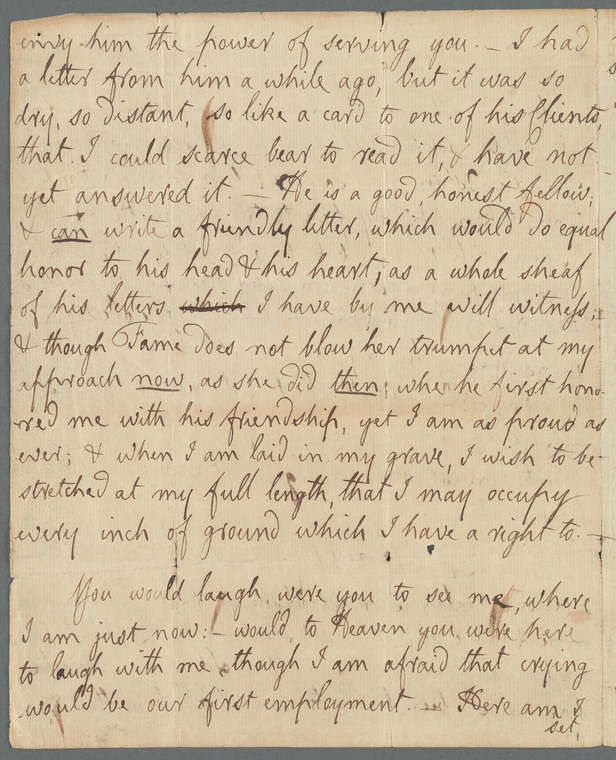 envy him the power of serving you. — I had
a letter from him a while ago, but it was so
dry, so distant, so like a card to one of his Clients,
that I could scarce bear to read it, & have not
yet answered it. — He is a good, honest fellow;
& can write a friendly letter, which would do equal
honor to his head & his heart, as a whole sheaf
of his letters which I have by me will witness;
& though Fame does not blow her trumpet at my
approach now, as she did then, when he first hono-
red me with his friendship, yet I am as proud as
ever; & when I am laid in my grave, I wish to be
stretched at my full length, that I may occupy
every inch of ground which I have a right to. —
You would laugh, were you to see me, where
I am just now: — would to Heaven you were here
to laugh with me, though I am afraid that crying
would be our first employment. — Here am I
set,